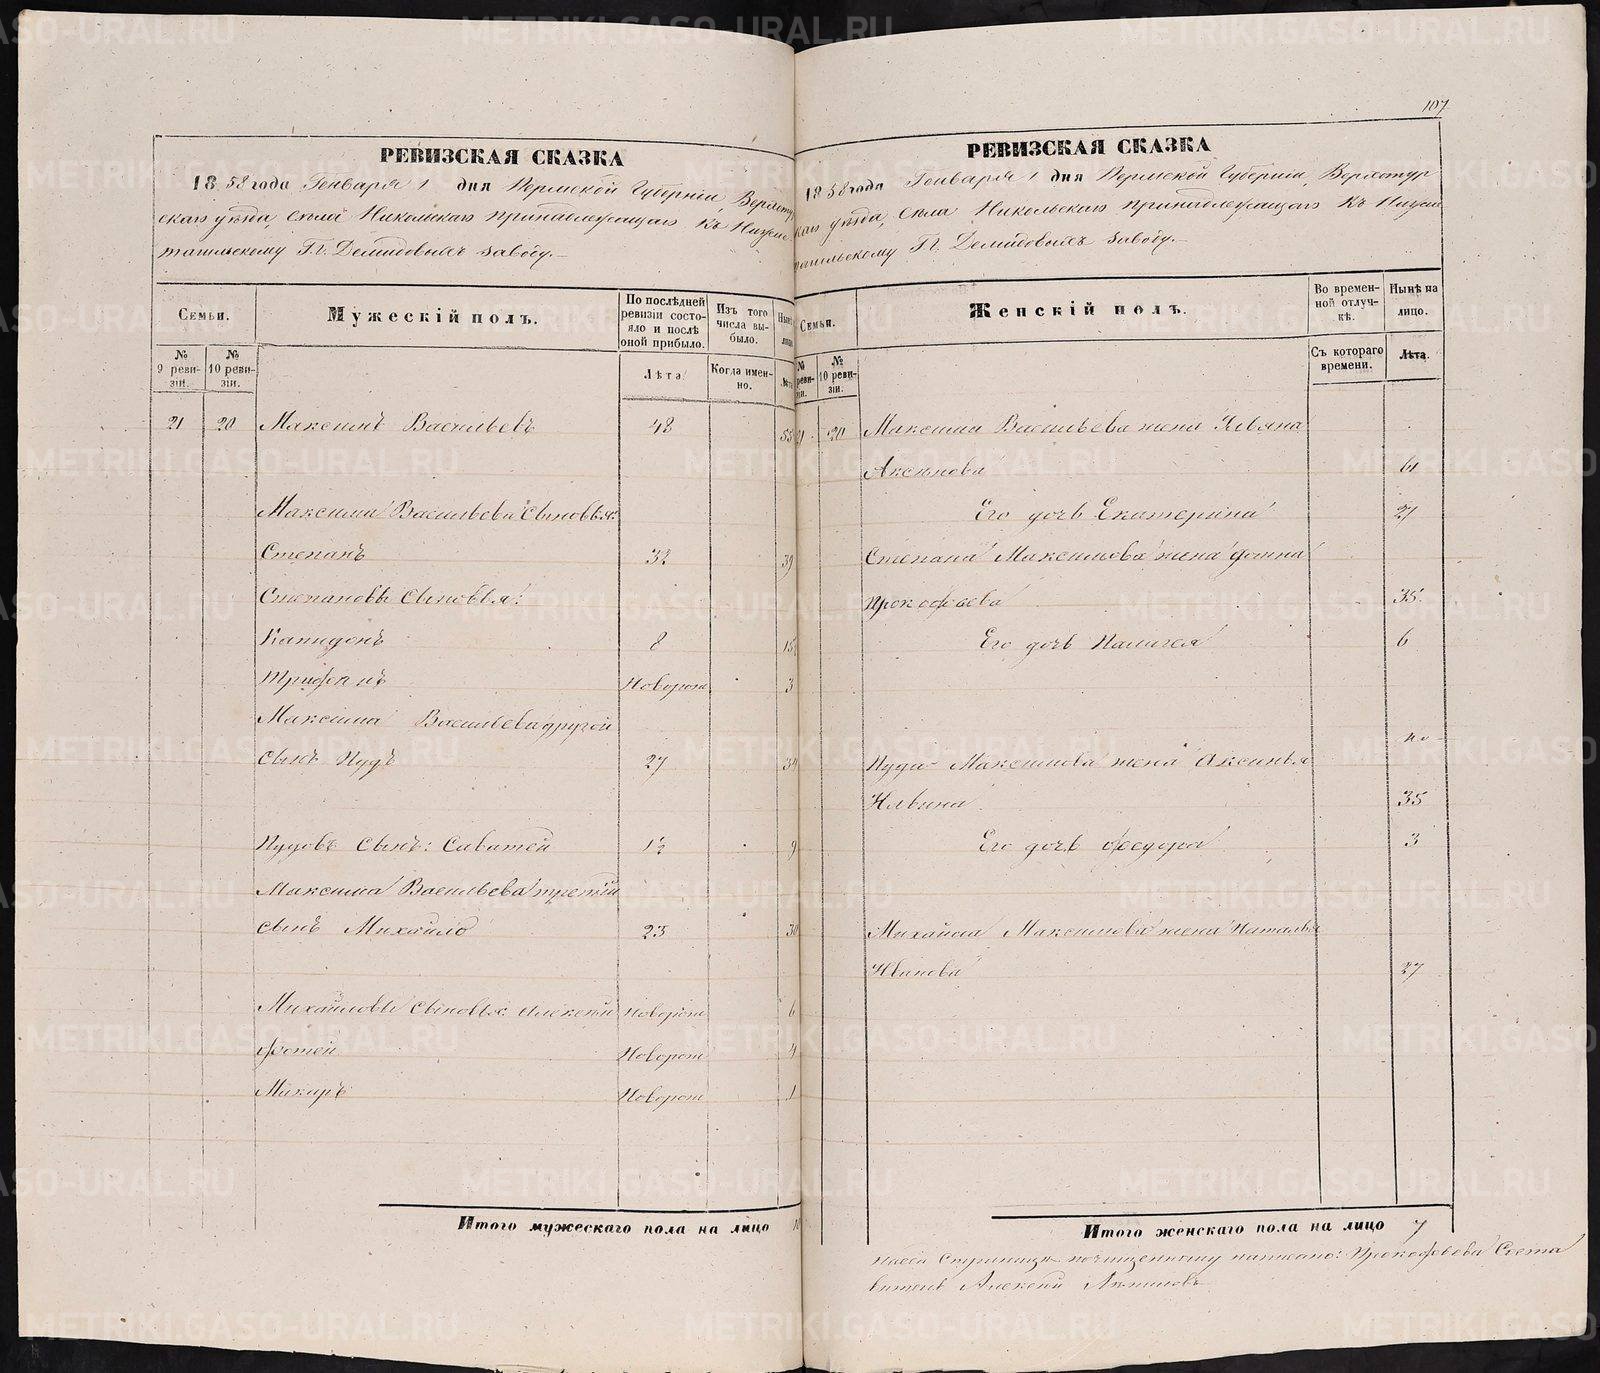 107
РЕВИЗСКАЯ СКАЗКА
1858 года Генваря 1 дня Пермской Губерніи Верхотур
скаго уѣзда, Села Никольскаго принадлежащаго Къ Нижне
тагильскому Г.г. Демидовыхъ заводу.
Семьи.
Мужескій полъ.
По послѣдней ревизіи состояло и послѣ оной прибыло.
Изъ того числа выбыло.
№ 9 ревизіи.
№ 10 ревизіи.
Лѣта
Когда именно.
Лѣта
21 20 Максимъ Васильевъ 48 55
Максима Васильева сыновья:
Степанъ 32 39
Степановы Сыновья:
Капидонъ 8 15
Трифанъ Новорож 3
Максима Васильева другой
сынъ Пудъ 27 34
Пудовъ Сынъ: Саватей 1½ 9
Максима Васильева третій
сынъ Михайло 23 30
Михайловы сыновья: Алексѣй Новорож 6
Фотей Новорож 4
Макаръ Новорож 1
Итого мужескаго пола на лицо 10
РЕВИЗСКАЯ СКАЗКА
1858 года Генваря 1 дня Пермской Губерніи, Верхотур
скаго уѣзда, Села Никольскаго принадлежащаго Къ Нижне
тагильскому Г.г. Демидовыхъ заводу.
Семьи.
Женскій полъ.
Во временной отлучкѣ.
Нынѣ на лицо.
№ 9 ревизіи.
№ 10 ревизіи.
Съ котораго времени.
Лѣта.
21 20 Максима Васильева жена Ульяна
Аксенова 61
Его дочь Екатерина 21
Степана Максимова жена
Прокофьева 35
Его дочь Палагея 6
Пуда Максимова жена Аксинья
35
Его дочь Федора 3
Михайла Максимова жена Наталья
Иванова 27
Итого женскаго пола на лицо 7
написано: Прокофьева Соста
витель Алексѣй
METRIKI.GASO-URAL.RU